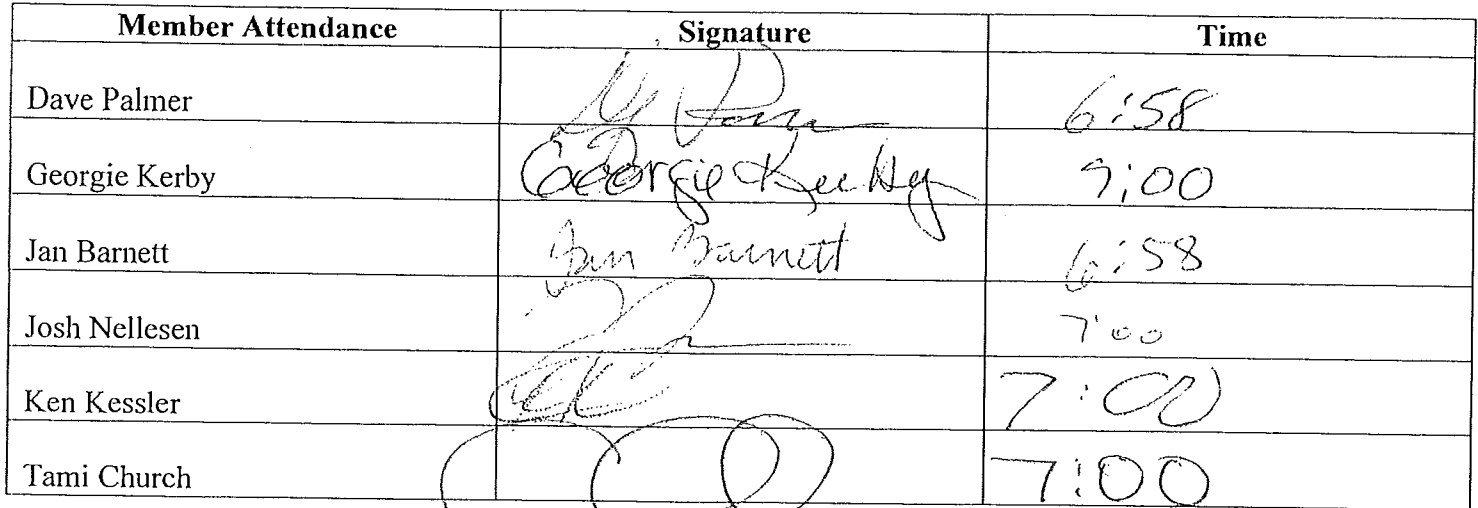 Member Attendance Signature Time
Dave Palmer 6:58
Georgie Kerby Georgie Kerby 7:00
Jan Barnett Jan Barnett 6:58
Josh Nellesen 7:00
Ken Kessler 7:00
Tami Church 7:00